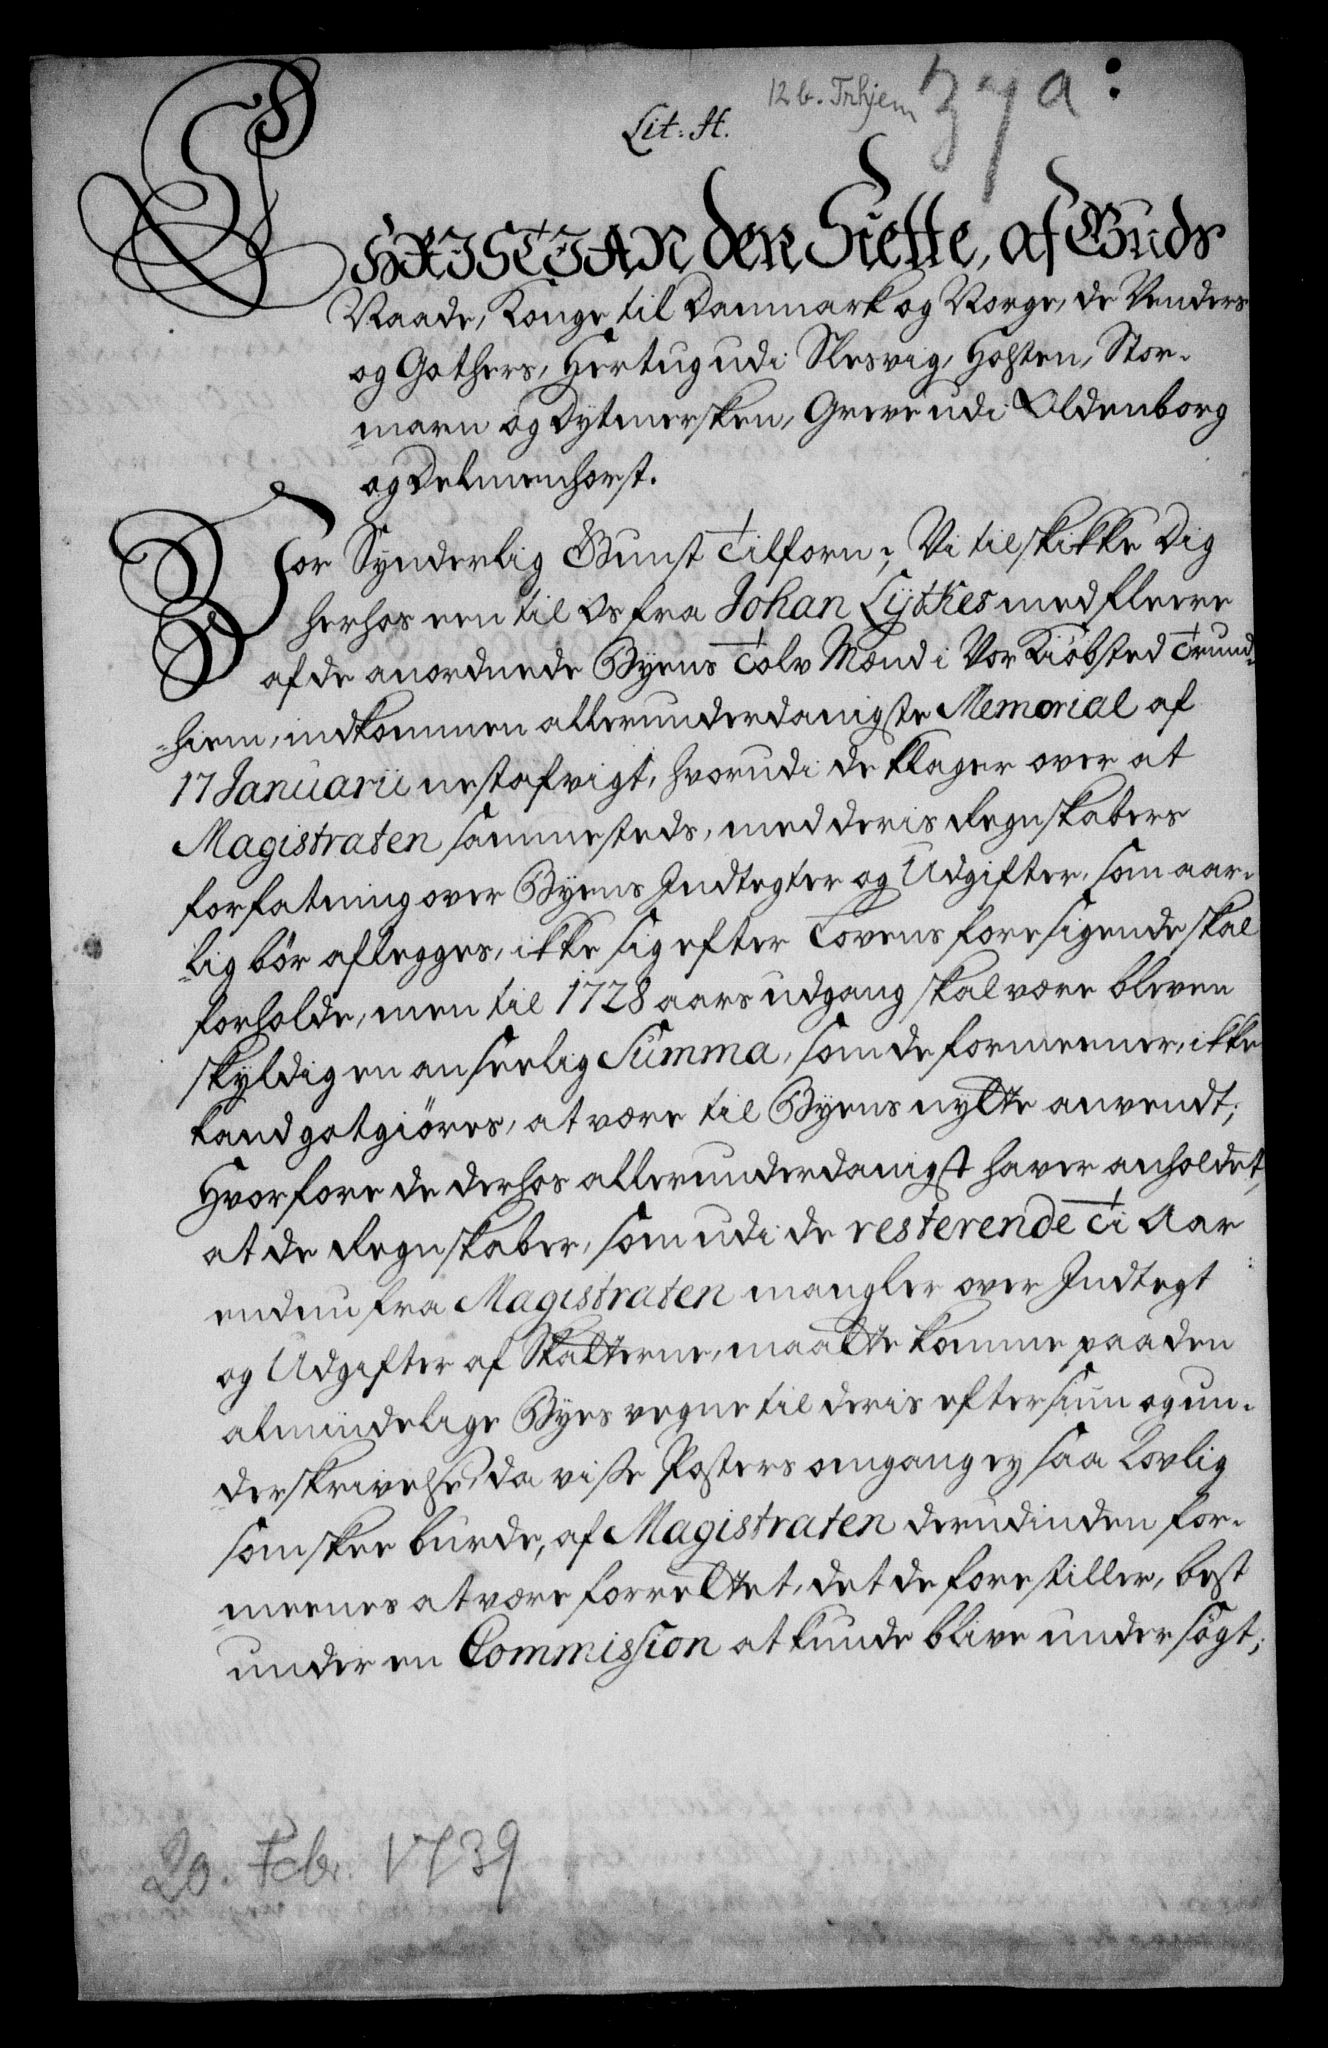 12 b. Trhjem 37 a:
Lit: H.
CHRISTIAN den Siette, af Guds
Naade, Konge til Danmark og Norge, de Venders
og Gothers, Hertug udi Slesvig, Holsten, Stor-
marn og Dytmersken, Greve udi Oldenborg
og Delmenhorst.
Vor Synderlig Gunst tilforn; Vi tilskikke Dig
herhos een til Os fra Johan Lythes med fleere
af de anordnede Byens Tolv Mænd i Vor Kiöbsted Trund-
hiem, indkommen allerunderdanigste Memorial af
17 Januarii nestafvigt, hvorudi de klager over at
Magistraten sammesteds, med deris Regnskabers
forfatning over Byens Indtegter og Udgifter, som aar-
lig bör aflegges, ikke sig efter Lovens foresigende skal
forholde, men til 1728 aars udgang skal være bleven
skyldig en anseelig Summa, som de formeener, ikke
kand gotgiöres, at være til Byens nytte anvendt;
Hvorfore de derhos allerunderdanigst haver anholdet,
at de Regnskaber, som udi de resterende Ti Aar
endnu fra Magistraten mangler over Indtegt
og Udgifter af Skatterne, maatte komme paa den
almindelige Byes vegne til deris eftersiun og un-
derskrivelse, da visse Posters omgang ey saa Lovlig
som skee burde, af Magistraten derudinden for-
meenes at være forrettet, det de forestiller, best
under en Commission at kunde blive undersögt;
20. Febr. 1739